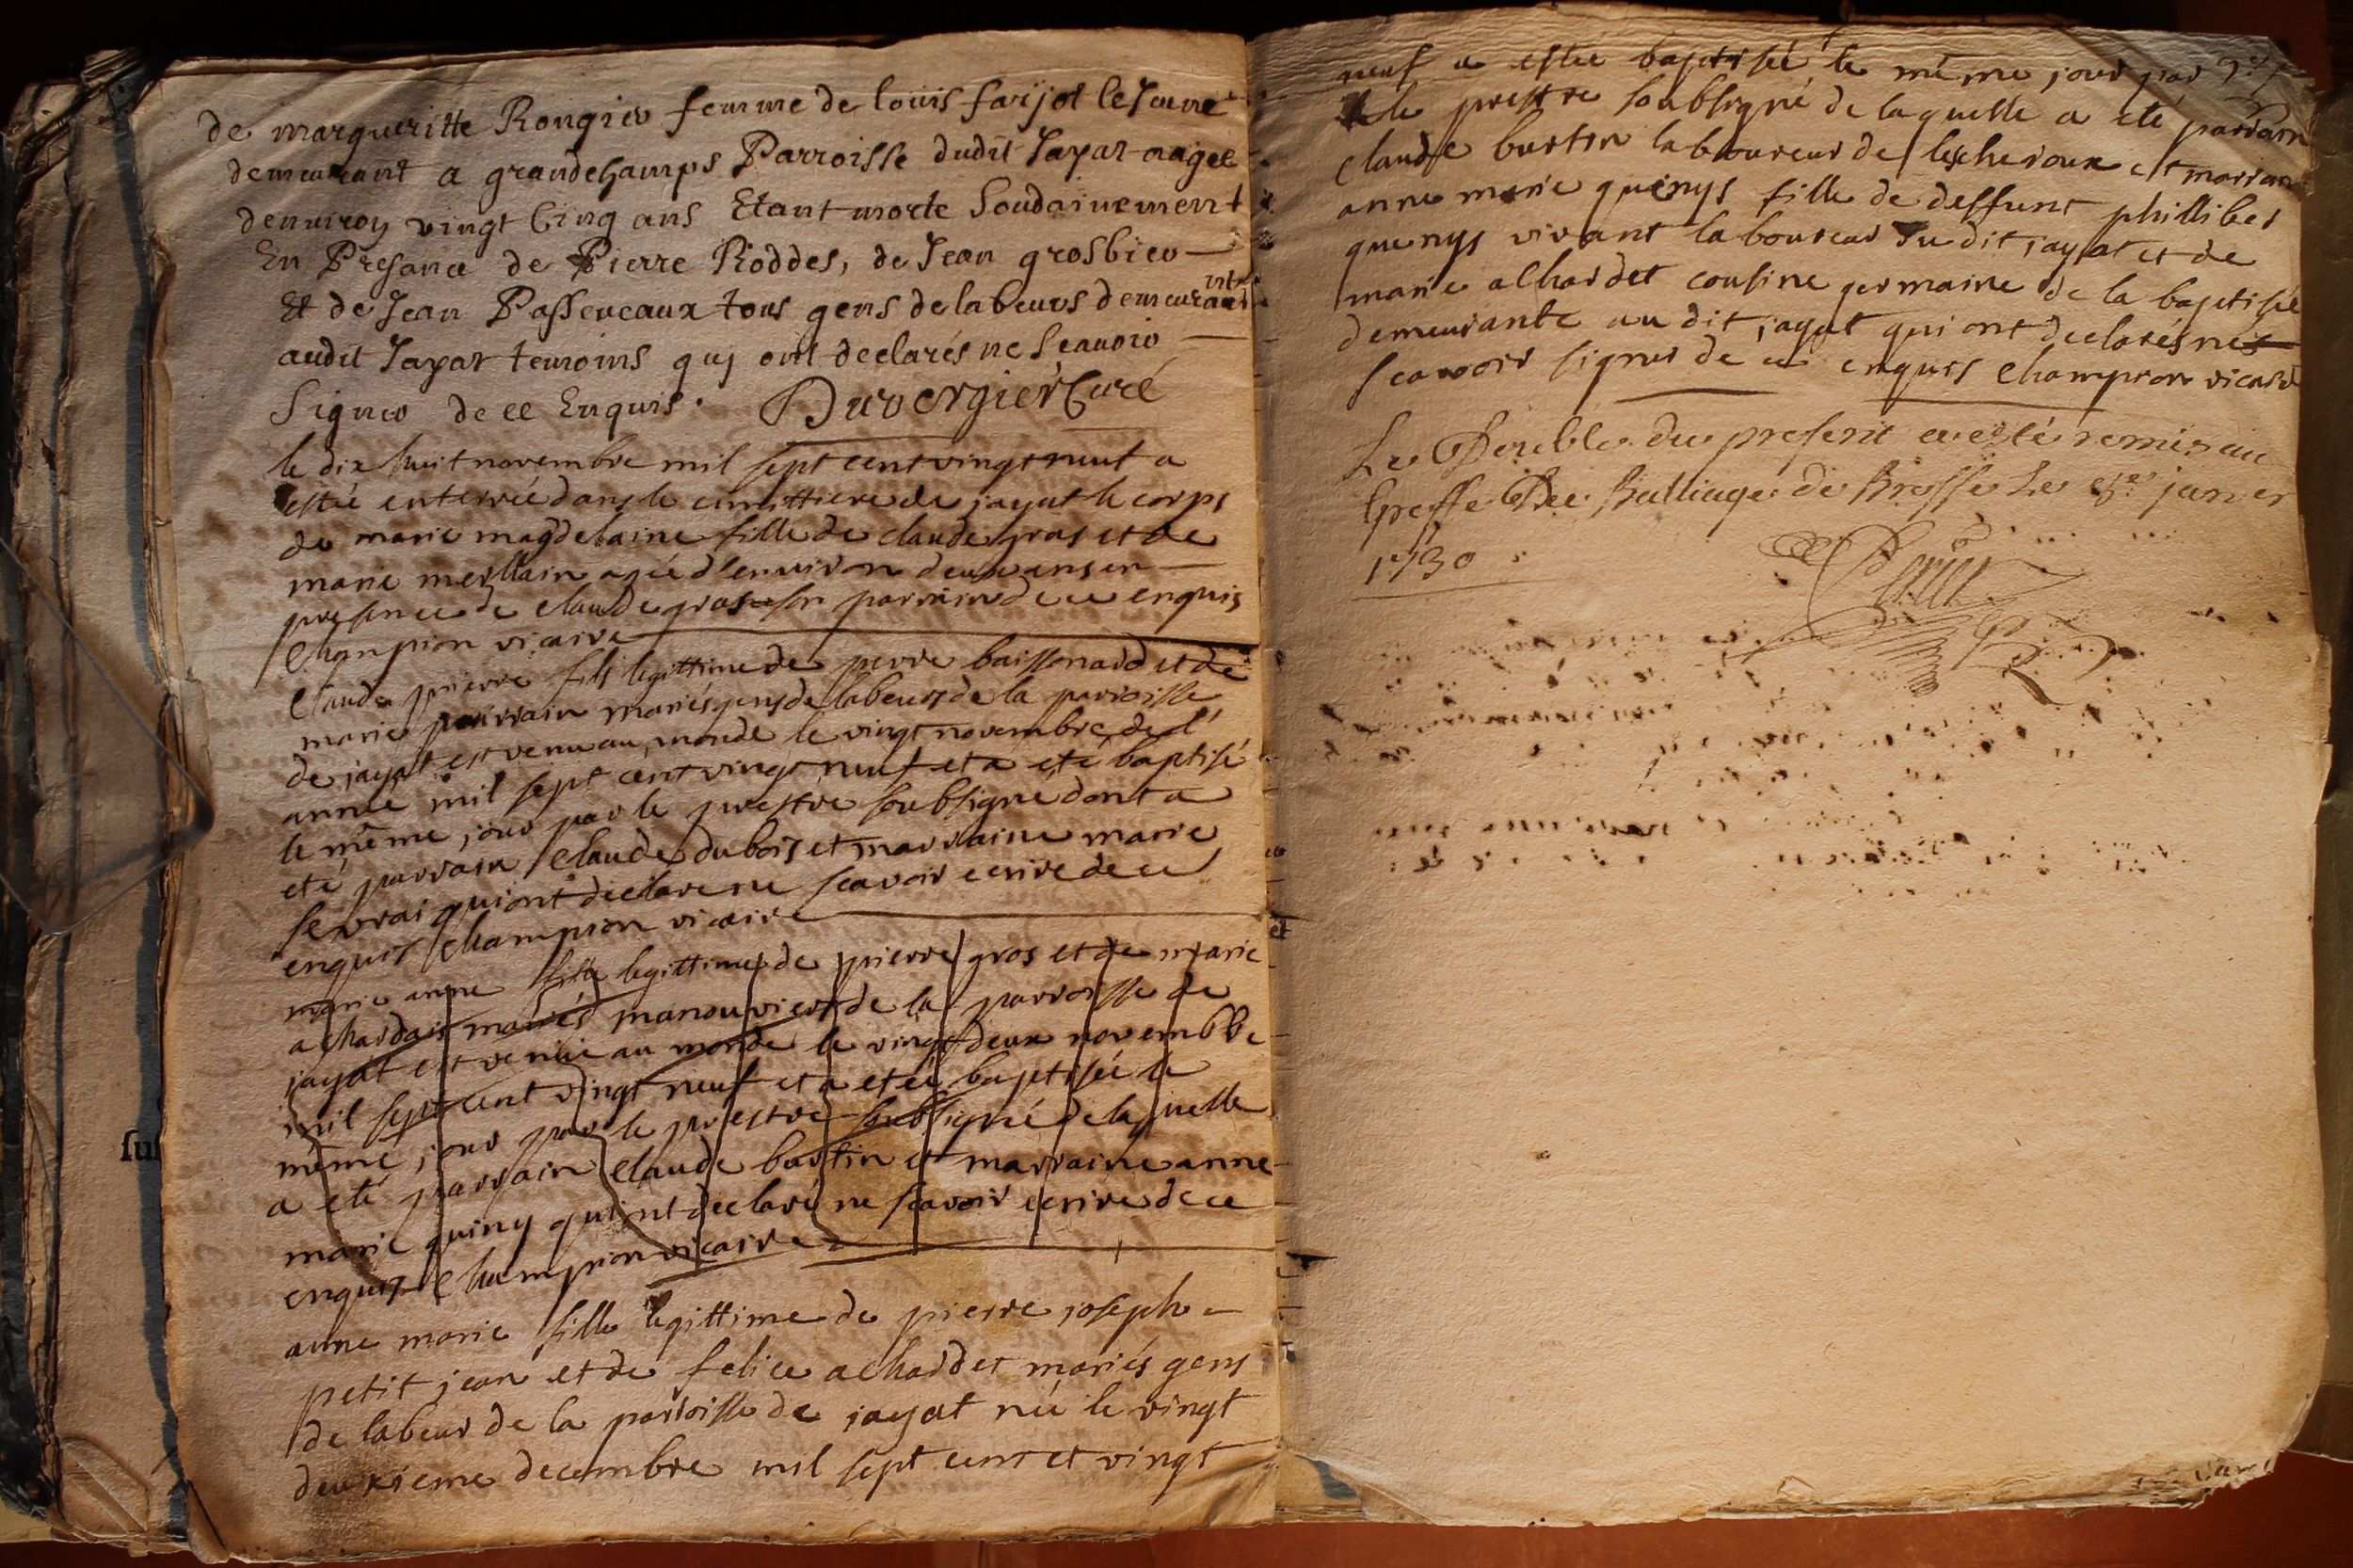 de margueritte Rongier femme de louis farjot le Jeune
demeurant a grandchamps Parroisse dudit Jayat aagee
denviron vingt Cinq ans Etant morte Soudainement
En Presance de Pierre Roddes, de Jean grosbier
Et de Jean Passeveaux tous gens de labeurs demeurant
audit Jayat temoins quj ont declarés ne Scavoir
Signer de ce Enquis. Duvergier Curé
le dix huit novembre mil sept cent vingt neuf a
estée enterrée dans le cimittiere de jayat le corps
de marie magdelaine fille de claude gras et de
marie meillain agée d'environ deux ans en
presence de claude gras son parrain de ce enquis
Champion vicaire
Claude pierre fils legittime de pierre baissonard et de
marie perrain mariés gens de labeurs de la parroisse
de jayat est venu au monde le vingt novembre de l'
année mil sept cent vingt neuf et a eté baptisé
le même jour par le prestre soubsigné dont a
eté parrain Claude dubois et marraine marie
sevrai qui ont declare ne scavoir ecrire de ce
enquis Champion vicaire
marie anne fille legittime de pierre gros et de marie
achardais mariés manouvriers de la parroisse de
jayat est venüe au monde le vingt deux novembbe
mil sept cent vingt neuf et a etéé baptisée le
même jour par le prestre soubsigné de laquelle
a eté parrain Claude burtin et marraine anne
marie quiny qui ont declaré ne scavoir ecrire de ce
enquis Champion vicaire
anne marie fille legittime de pierre joseph
petit jean et de felice achardet mariés gens
de labeur de la parroisse de jayat née le vingt
deuxieme decembre mil sept cent et vingt
neuf a estée baptisée le même jour par
le prestre soubsigné de laquelle a eté parrain
Claude burtin laboureur de lescheroux et marrain
anne marie quenys fille de deffunt phillibet
quenys vivant laboureur du dit jayat et de
marie achardet cousine germaine de la baptisée
demeurante au dit jayat qui ont declarés ne
scavoir signer de ce enquis Champion vicaire
Le Double du present a esté remis au
Greffe du Balliage de Bresse Le janvier
1730